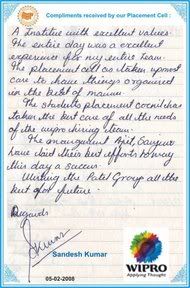 Compliments received by our Placement Cell :
A Institue with excellent values.
The entire day was a excellent
experience for my entire team.
The placement cell has taken upmost
care to have things organised
in the best of manner.
The students placement coordinators has
taken the best care of all the needs
of the wipro hiring team.
The management
have laid their best efforts to
this day a success.
Wishing the Patel Group all the
best for future.
Regards
Sandesh Kumar
05-02-2008
WIPRO
Applying Thought